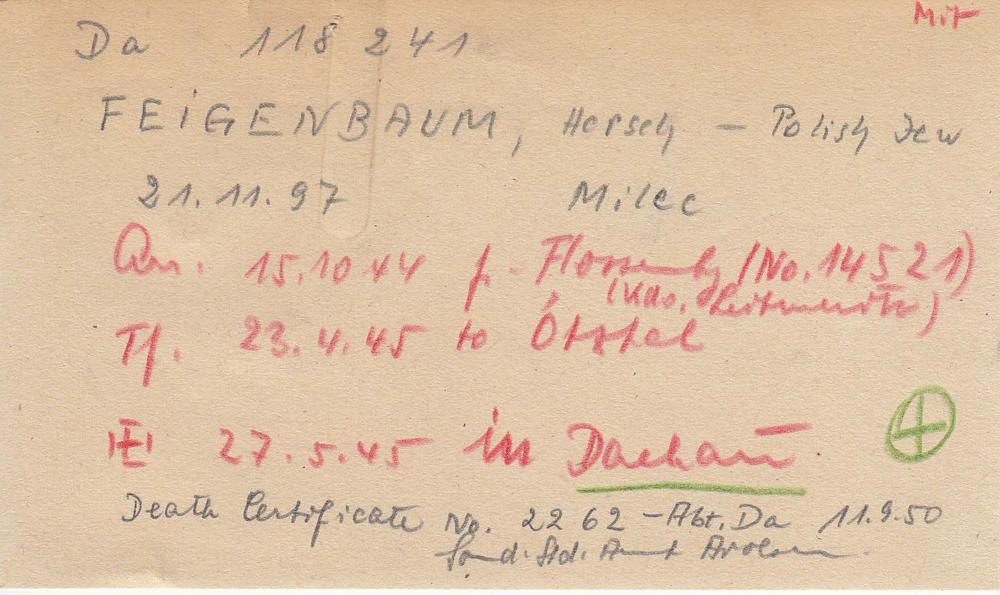 Mit
Da 118 241
FEIGENBAUM, Hersch – Polish Jew
21.11.97 Milec
Arr. 15.10.44 f. Flossenbg (No. 14521)
(Kdo. Leitmeritz)
Tf. 23.4.45 to Ötztal
27.5.45 in Dachau
Death Certificate No. 2262 – Abt. Da 11.9.50
Sond. Std. Amt Arolsen